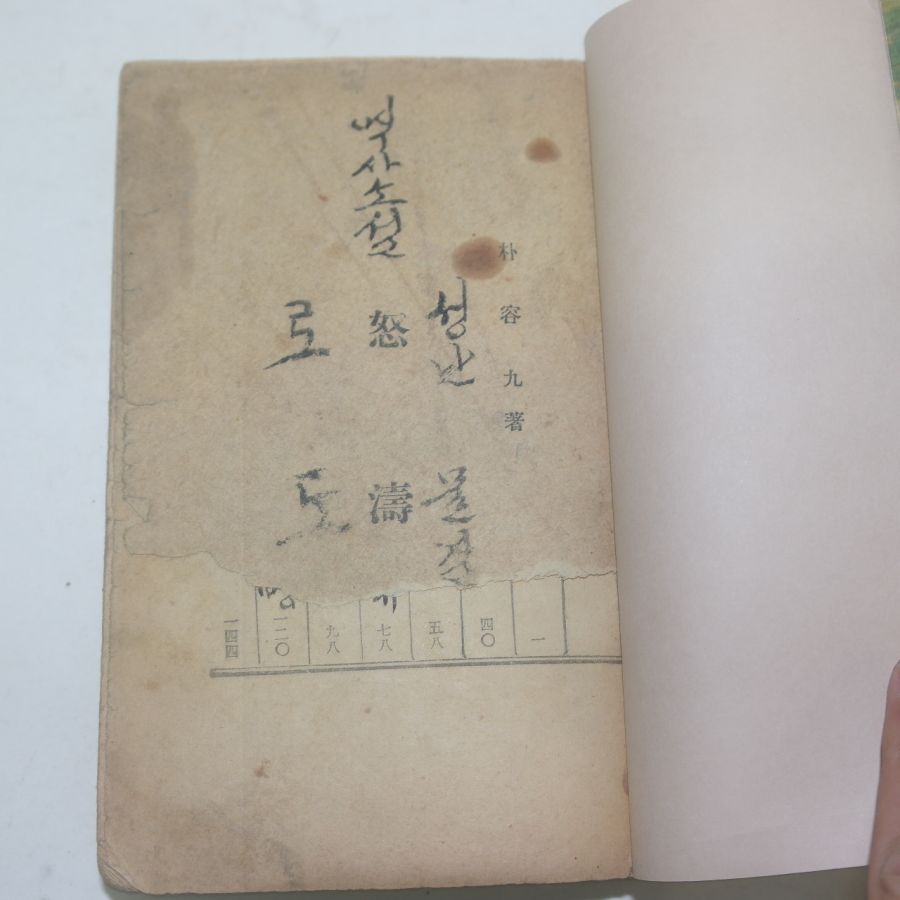 朴容九著
성난 물결
怒濤
력사소설
로도
一
四〇
五八
七八
九八
一二〇
一四四